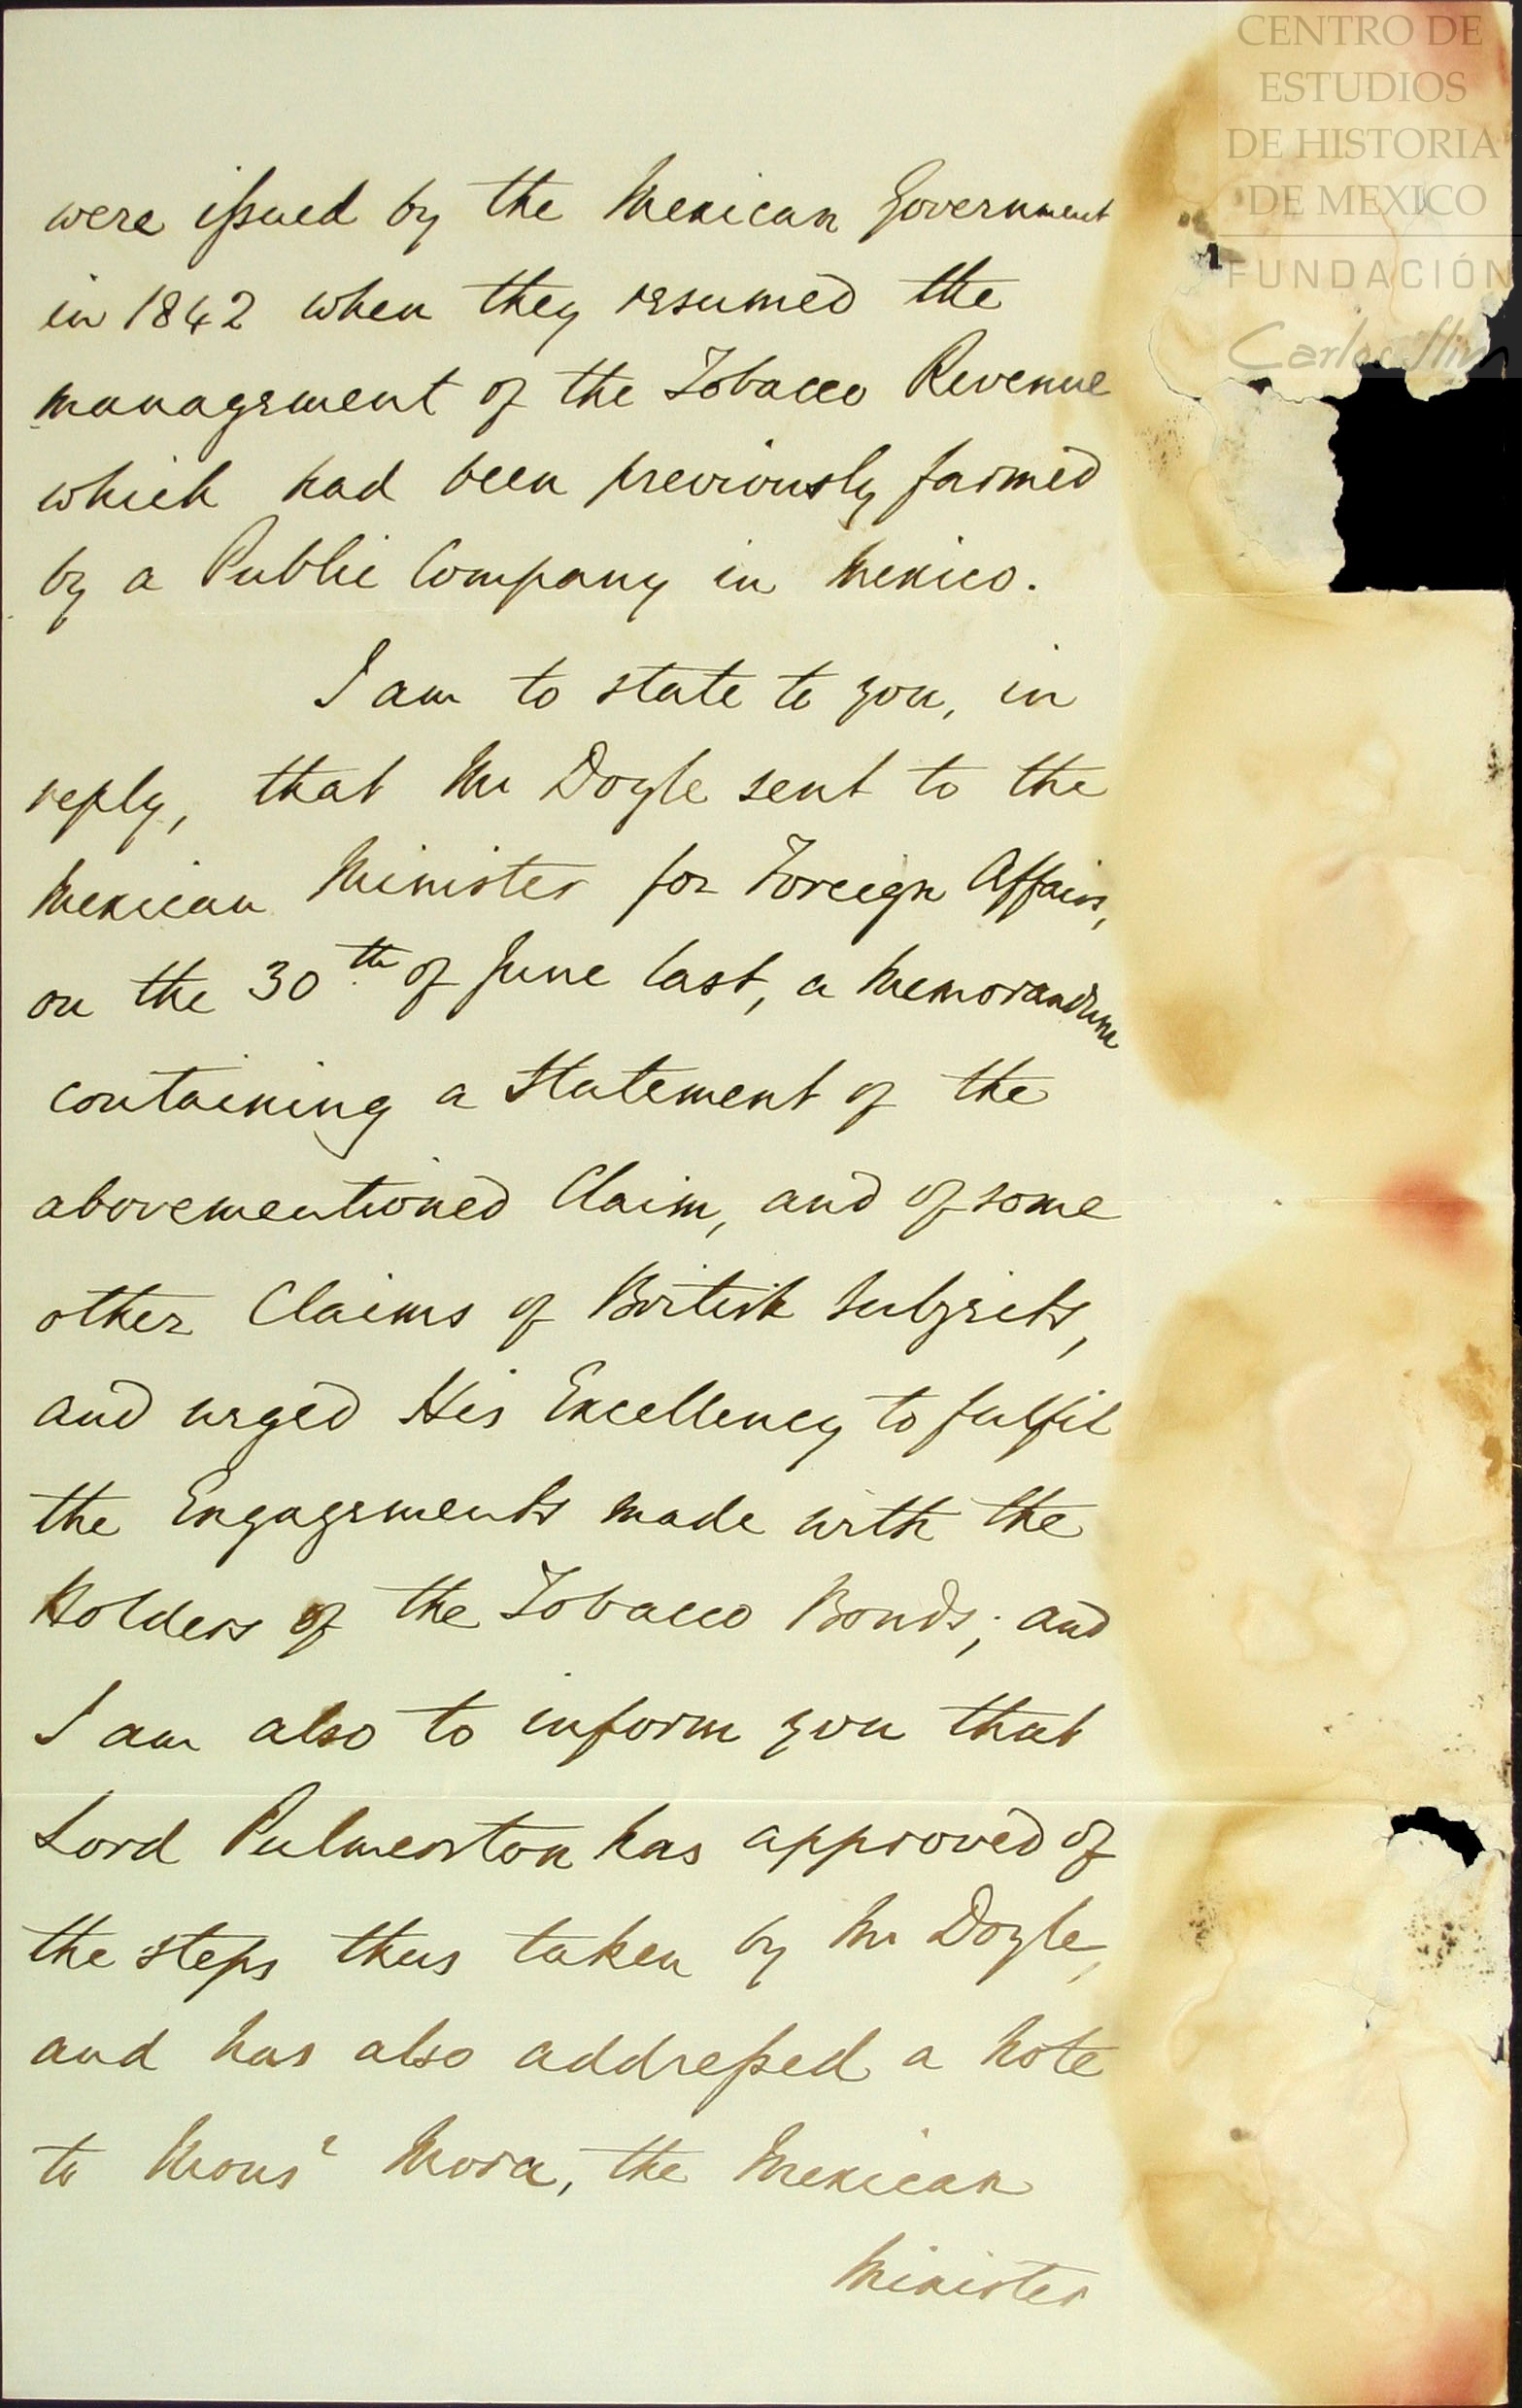 CENTRO DE
ESTUDIOS
DE HISTORIA
DE MEXICO
FUNDACIÓN
Carlos Slim
were issued by the Mexican Government
in 1842 when they resumed the
management of the Tobacco Revenue
which had been previously farmed
by a Public Company in Mexico.
I am to state to you, in
reply, that Mr Doyle sent to the
Mexican Minister for Foreign Affairs,
on the 30th of June last, a Memorandum
containing a Statement of the
abovementioned Claim, and of some
other Claims of British Subjects,
and urged His Excellency to fulfil
the Engagements made with the
Holders of the Tobacco Bonds; and
I am also to inform you that
Lord Palmerston has approved of
the steps thus taken by Mr Doyle,
and has also addressed a Note
to Monsr Mora, the Mexican
Minister